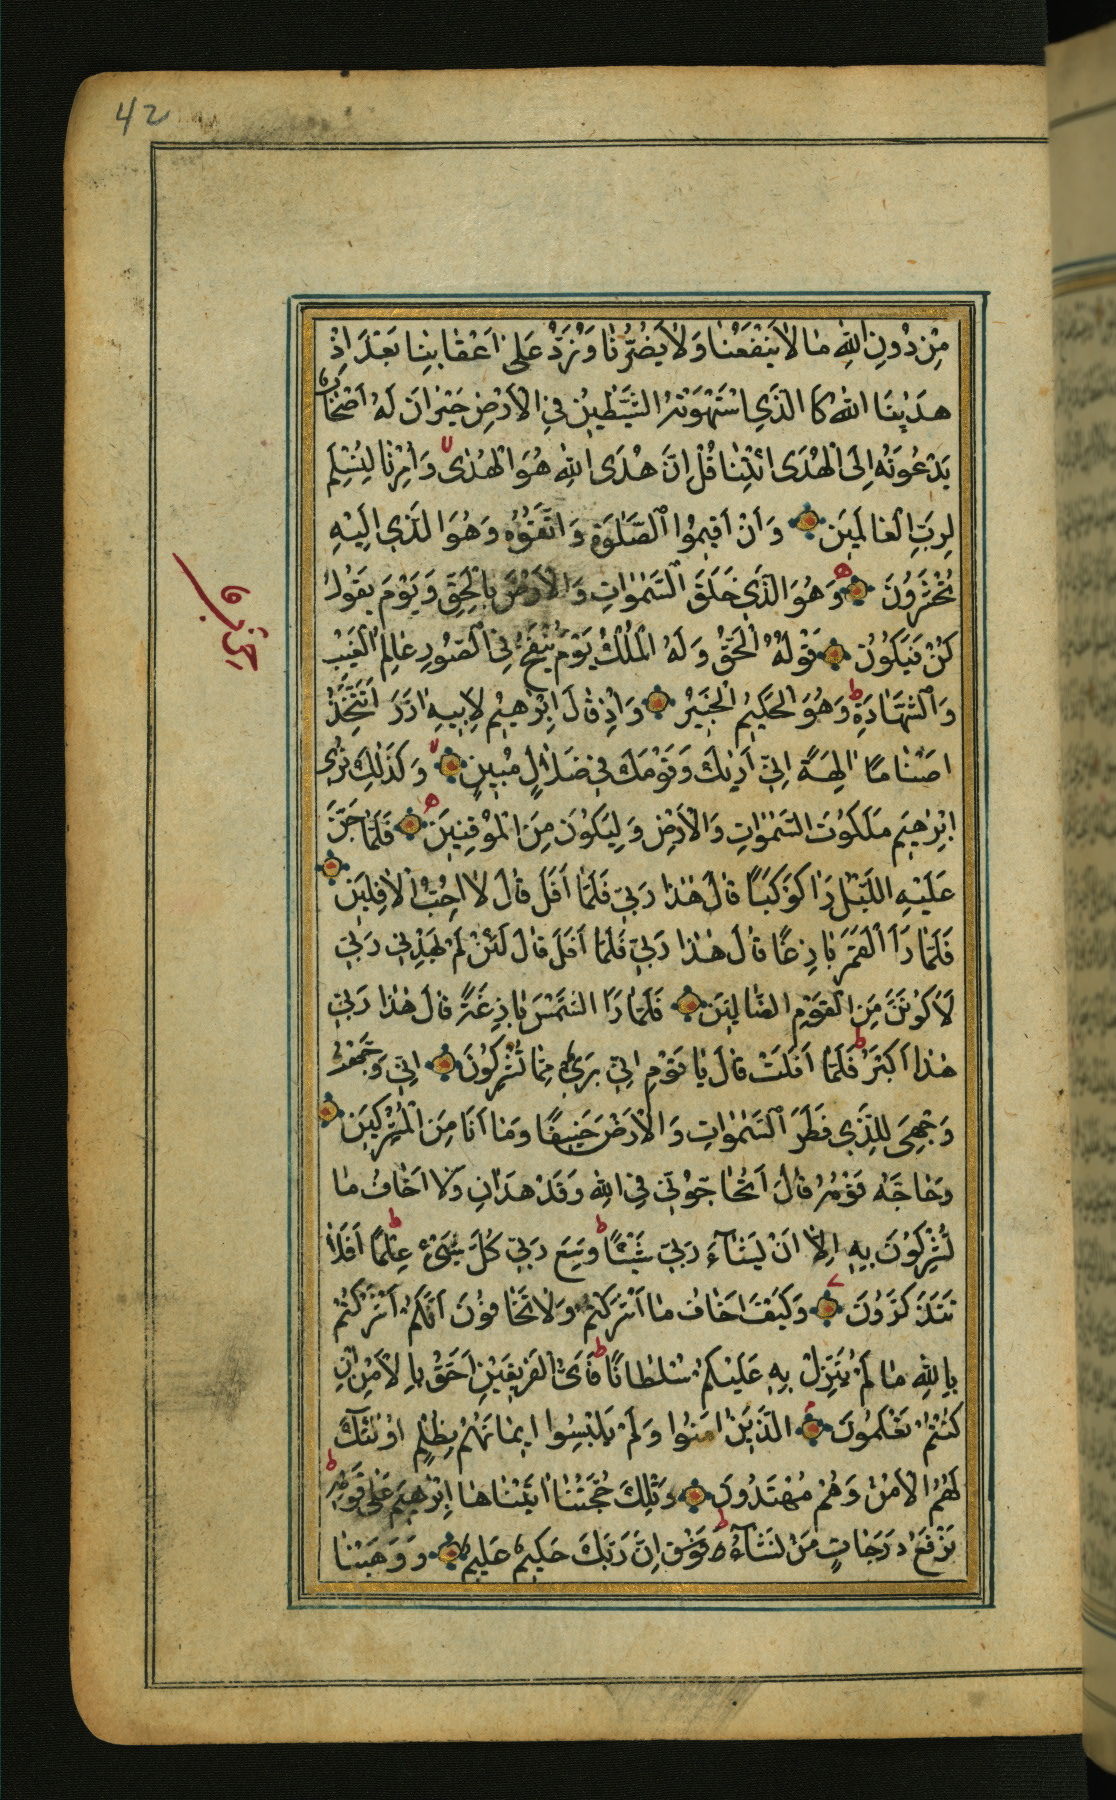 42
مِنْ دُونِ اللّٰهِ مٰا لاٰ يَنْفَعُنٰا وَلاٰ يَضُرُّنٰا وَنُرَدُّ عَلىٰ اَعْقٰابِنٰا بَعْدَ اِذْ
هَدٰينَا اللّٰهُ كَا الَّذِي اسْتَهْوَتْهُ الشَّيٰطٖينُ فِي الْاَرْضِ حَيْرٰانَ لَهُ اَصْحٰابٌ
يَدْعُونَهُ اِلَى الْهُدَى ائْتِنٰا قُلْ اِنَّ هُدَى اللّٰهِ هُوَ الْهُدىٰ وَاُمِرْنٰا لِنُسْلِمَ
لِرَبِّ الْعٰالَمٖينَ وَ اَنْ اَقٖيمُوا الصَّلٰوةَ وَاتَّقُوهُ وَهُوَ الَّذٖي اِلَيْهِ
تُحْشَرُونَ وَهُوَ الَّذٖي خَلَقَ السَّمٰوٰاتِ وَالْاَرْضَ بِالْحَقِّ وَيَوْمَ يَقُولُ
كُنْ فَيَكُونُ قَوْلُهُ الْحَقُّ وَلَهُ الْمُلْكُ يَوْمَ يُنْفَخُ فِي الصُّورِ عٰالِمُ الْغَيْبِ
وَالشَّهٰادَةِ وَهُوَ الْحَكٖيمُ الْخَبٖيرُ وَاِذْ قٰالَ اِبْرٰهٖيمُ لِاَبٖيهِ اٰزَرَ اَتَتَّخِذُ
اَصْنٰامًا اٰلِهَةً اِنّٖي اَرٰيكَ وَقَوْمَكَ فٖي ضَلاٰلٍ مُبٖينٍ وَكَذٰلِكَ نُرٖي
اِبْرٰهٖيمَ مَلَكُوتَ السَّمٰوٰاتِ وَالْاَرْضِ وَلِيَكُونَ مِنَ الْمُوقِنٖينَ فَلَمّٰا جَنَّ
عَلَيْهِ اللَّيْلُ رَاٰ كَوْكَبًا قٰالَ هٰذٰا رَبّٖي فَلَمّٰا اَفَلَ قٰالَ لاٰ اُحِبُّ الْاٰفِلٖينَ
فَلَمّٰا رَاَ الْقَمَرَ بٰازِغًا قٰالَ هٰذٰا رَبّٖي فَلَمّٰا اَفَلَ قٰالَ لَئِنْ لَمْ يَهْدِنٖي رَبّٖي
لَاَكُونَنَّ مِنَ الْقَوْمِ الضّٰالّٖينَ فَلَمّٰا رَاَ الشَّمْسَ بٰازِغَةً قٰالَ هٰذٰا رَبّٖي
هٰذٰا اَكْبَرُ فَلَمّٰا اَفَلَتْ قٰالَ يٰا قَوْمِ اِنّٖي بَرٖيءٌ مِمّٰا تُشْرِكُونَ اِنّٖي وَجَّهْتُ
وَجْهِيَ لِلَّذٖي فَطَرَ السَّمٰوٰاتِ وَالْاَرْضَ حَنٖيفًا وَمٰا اَنَا مِنَ الْمُشْرِكٖينَ
وَحٰاجَّهُ قَوْمُهُ قٰالَ اَتُحٰاجُّونّٖي فِي اللّٰهِ وَقَدْ هَدٰانِ وَلاٰ اَخٰافُ مٰا
تُشْرِكُونَ بِهٖ اِلاّٰ اَنْ يَشٰآءَ رَبّٖي شَيْئًا وَسِعَ رَبّٖي كُلَّ شَيْءٍ عِلْمًا اَفَلاٰ
تَتَذَكَّرُونَ وَكَيْفَ اَخٰافُ مٰا اَشْرَكْتُمْ وَلاٰ تَخٰافُونَ اَنَّكُمْ اَشْرَكْتُمْ
بِاللّٰهِ مٰا لَمْ يُنَزِّلْ بِهٖ عَلَيْكُمْ سُلْطٰانًا فَاَيُّ الْفَرٖيقَيْنِ اَحَقُّ بِالْاَمْنِ اِنْ
كُنْتُمْ تَعْلَمُونَ الَّذٖينَ اٰمَنُوا وَلَمْ يَلْبِسُوا اٖيمٰانَهُمْ بِظُلْمٍ اُولٰئِكَ
لَهُمُ الْاَمْنُ وَهُمْ مُهْتَدُونَ وَتِلْكَ حُجَّتُنٰا اٰتَيْنٰاهٰا اِبْرٰهٖيمَ عَلىٰ قَوْمِهٖ
نَرْفَعُ دَرَجٰاتٍ مَنْ نَشٰآءُ فَوْق اِنَّ رَبَّكَ حَكٖيمٌ عَلٖيمٌ وَوَهَبْنٰا